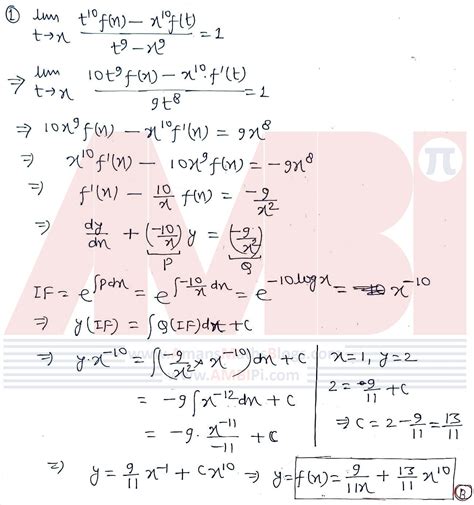 ① lim t→x (t¹⁰f(x) − x¹⁰f(t)) / (t⁹ − x⁹) = 1
⇒ lim t→x (10t⁹f(x) − x¹⁰.f'(t)) / 9t⁸ = 1
⇒ 10x⁹f(x) − x¹⁰f'(x) = 9x⁸
⇒ x¹⁰f'(x) − 10x⁹f(x) = −9x⁸
⇒ f'(x) − 10/x f(x) = −9/x²
⇒ dy/dx + (−10/x) y = (−9/x²)
P Q
IF = e^∫Pdx = e^∫−10/x dx = e^−10logx = x⁻¹⁰
⇒ y(IF) = ∫Q(IF)dx + C
⇒ y.x⁻¹⁰ = ∫(−9/x² × x⁻¹⁰)dx + C
= −9∫x⁻¹²dx + C
= −9. x⁻¹¹/−11 + C
x=1, y=2
2 = 9/11 + C
⇒ C = 2 − 9/11 = 13/11
⇒ y = 9/11 x⁻¹ + Cx¹⁰ ⇒ y = f(x) = 9/11x + 13/11 x¹⁰
B
AMBI
π
www.AMBiPi.com